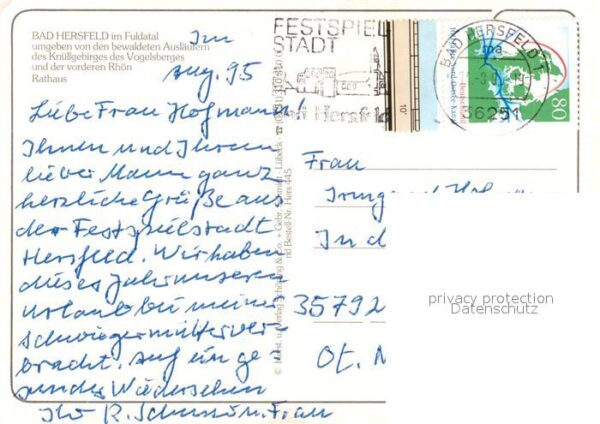 BAD HERSFELD im Fuldatal
umgeben von den bewaldeten Ausläufern
des Knüllgebirges des Vogelsberges
und der vorderen Rhön
Rathaus
Im
Aug. 95
Liebe Frau Hofmann!
Ihnen und Ihrem
lieber Mann ganz
herzliche Grüße aus
der Festspielstadt
Hersfeld. Wir haben
dieses Jahr unseren
Urlaub bei meiner
Schwiegermutter ver-
bracht. Auf ein ge
sundes Wiedersehen
Ihr R. u. Frau
FESTSPIEL
STADT
Bad Hersfeld
BAD HERSFELD 1
ma
36251
80
10'
Schöning & Co. + Gebr. Schmidt - Lübeck
Bestell-Nr. Hers 445
Frau
In d
35792
Ot.
privacy protection
Datenschutz